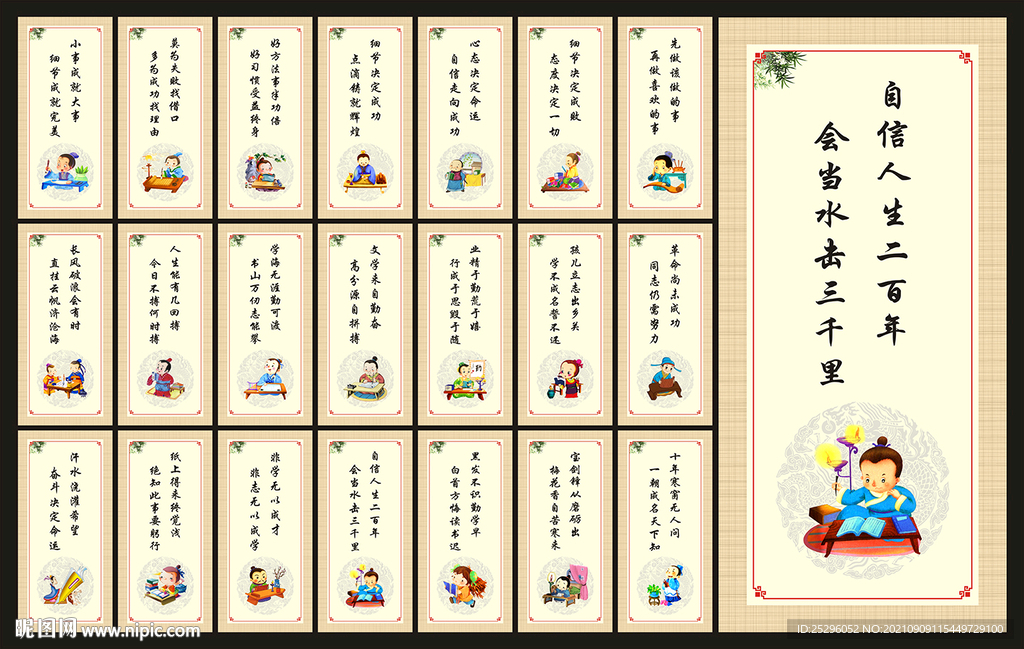 小事成就大事
细节成就完美
莫为失败找借口
多为成功找理由
好方法事半功倍
好习惯受益终身
细节决定成功
点滴铸就辉煌
心态决定命运
自信走向成功
细节决定成败
态度决定一切
先做该做的事
再做喜欢的事
长风破浪会有时
直挂云帆济沧海
人生能有几回搏
今日不搏何时搏
学海无涯勤可渡
书山万仞志能攀
文学来自勤奋
高分源自拼搏
业精于勤荒于嬉
行成于思毁于随
孩儿立志出乡关
学不成名誓不还
革命尚未成功
同志仍需努力
汗水浇灌希望
奋斗决定命运
纸上得来终觉浅
绝知此事要躬行
非学无以成才
非志无以成学
自信人生二百年
会当水击三千里
黑发不识勤学早
白首方悔读书迟
宝剑锋从磨砺出
梅花香自苦寒来
十年寒窗无人问
一朝成名天下知
自信人生二百年
会当水击三千里
昵图网 www.nipic.com
ID:25296052 NO:20210909115449729100